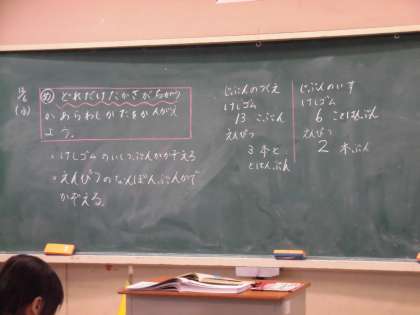 12/6
(水)
め どれだけたかさがちがう
か あらわしかたをかんがえ
よう。
・けしゴムのいくつぶんかかぞえる
・えんぴつのなんぼんぶんかで
かぞえる。
じぶんのつくえ
けしゴム
13 こぶん
えんぴつ
3本と
とはんぶん
じぶんのいす
けしゴム
6 ことはんぶん
えんぴつ
2 本ぶん